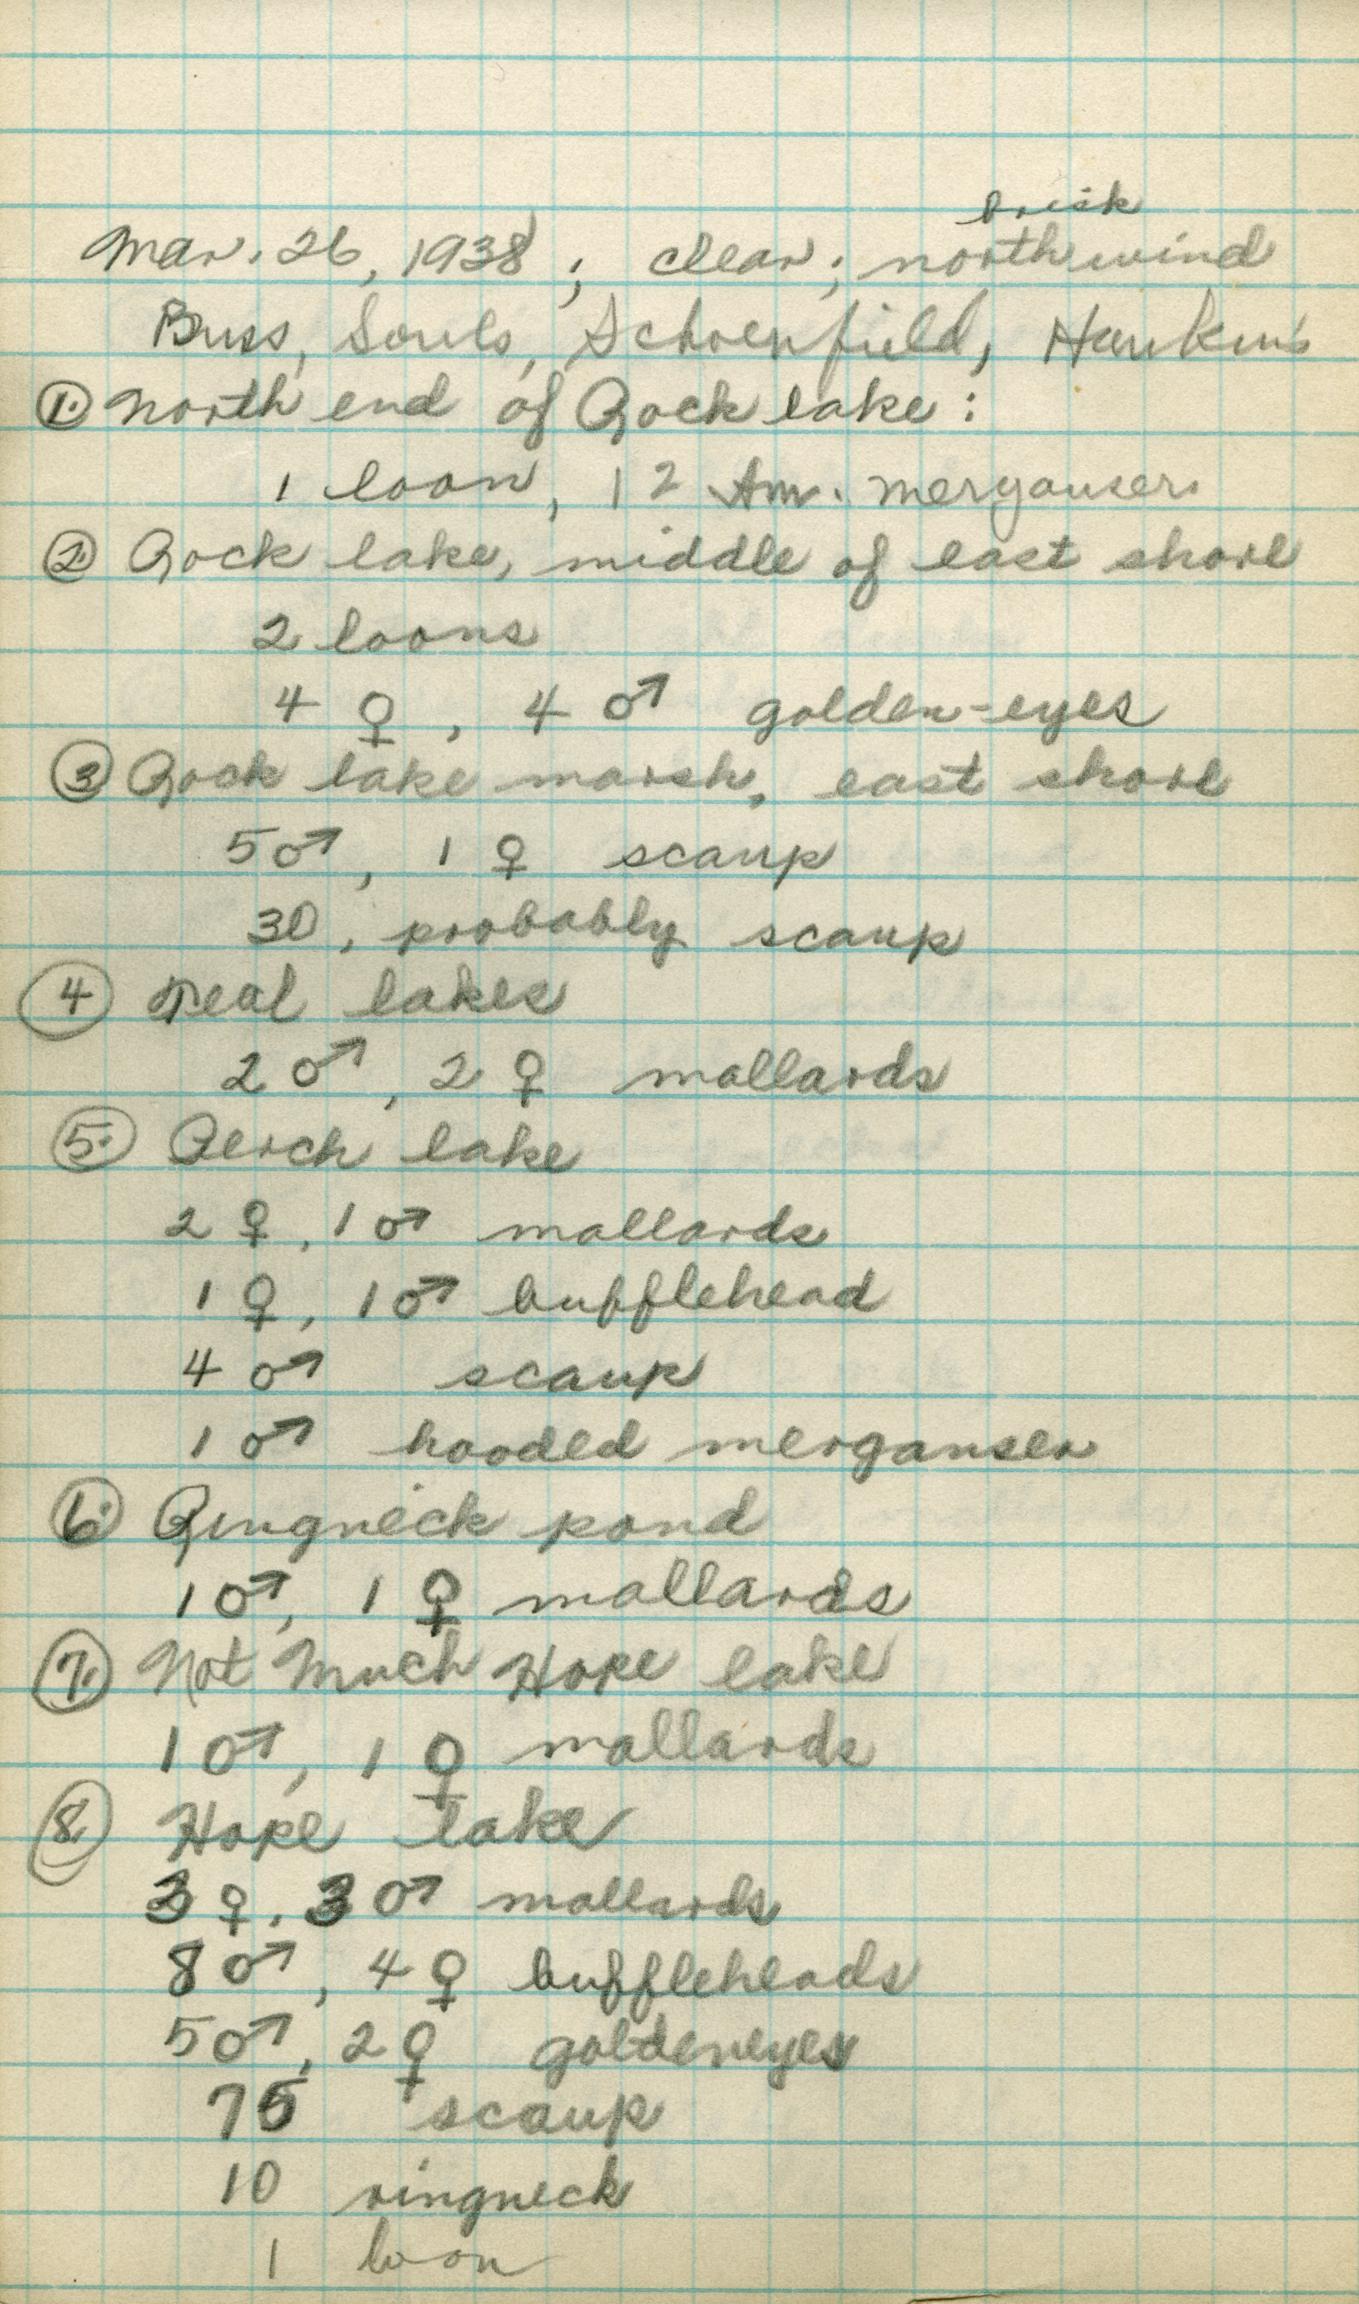 brisk
Mar. 26, 1938; clear; north wind
Buss, Souls, Schoenfield, Hawkins
1. North end of Rock lake:
1 loon, 12 Am. mergansers
2. Rock lake, middle of east shore
2 loons
4 ♀, 4 ♂ golden-eyes
3 Rock lake marsh, east shore
5♂, 1 ♀ scaup
30, probably scaup
4 Teal lakes
2 ♂, 2 ♀ mallards
5. Perch lake
2 ♀, 1 ♂ mallards
1 ♀, 1 ♂ bufflehead
4 ♂ scaup
1 ♂ hooded merganser
6. Ringneck pond
1♂, 1 ♀ mallards
7. Not Much Hope lake
1 ♂, 1 ♀ mallards
8. Hope lake
3 ♀, 3 ♂ mallards
8 ♂, 4 ♀ buffleheads
5♂, 2♀ goldeneyes
75 scaup
10 ringneck
1 loon